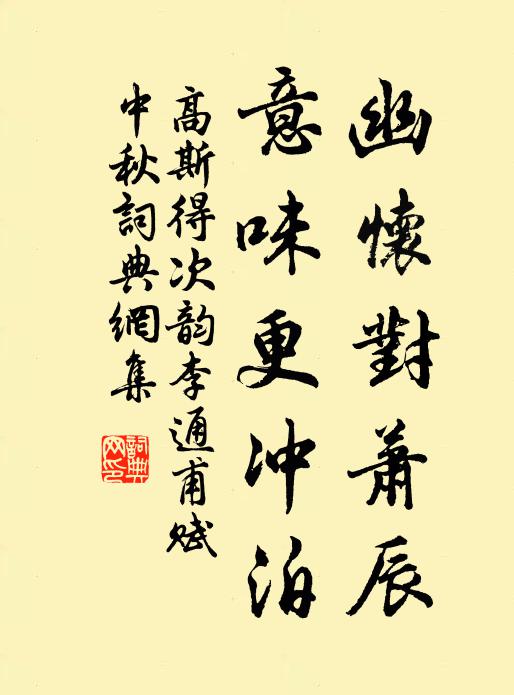 幽懷對蕭辰
意味更冲泊
高斯得次韵李通甫赋
中秋詞典網集
詞典网印